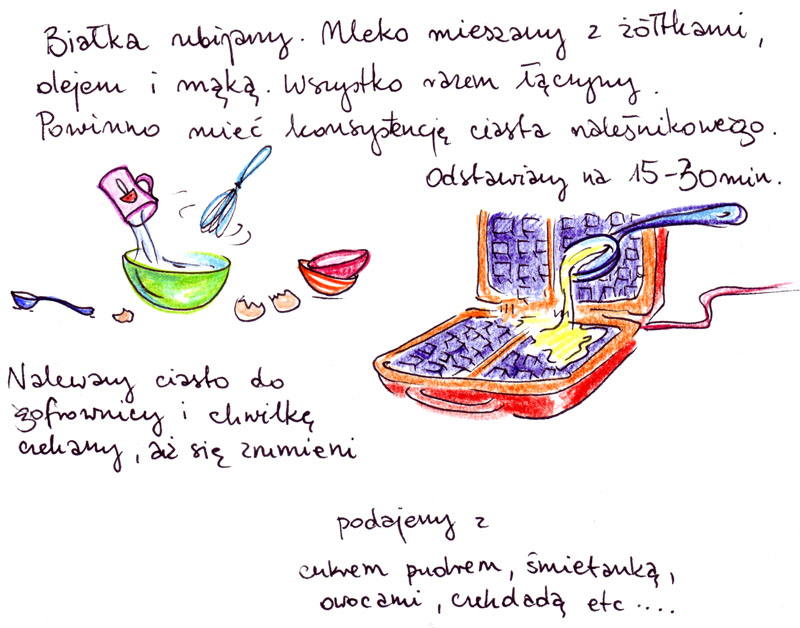 Białka ubijamy. Mleko mieszamy z żółtkami,
olejem i mąką. Wszystko razem łączymy.
Powinno mieć konsystencję ciasta naleśnikowego.
Odstawiamy na 15-30 min.
Nalewamy ciasto do
gofrownicy i chwilkę
czekamy, aż się zrumieni
podajemy z
cukrem pudrem, śmietanką,
owocami, czekoladą etc ....